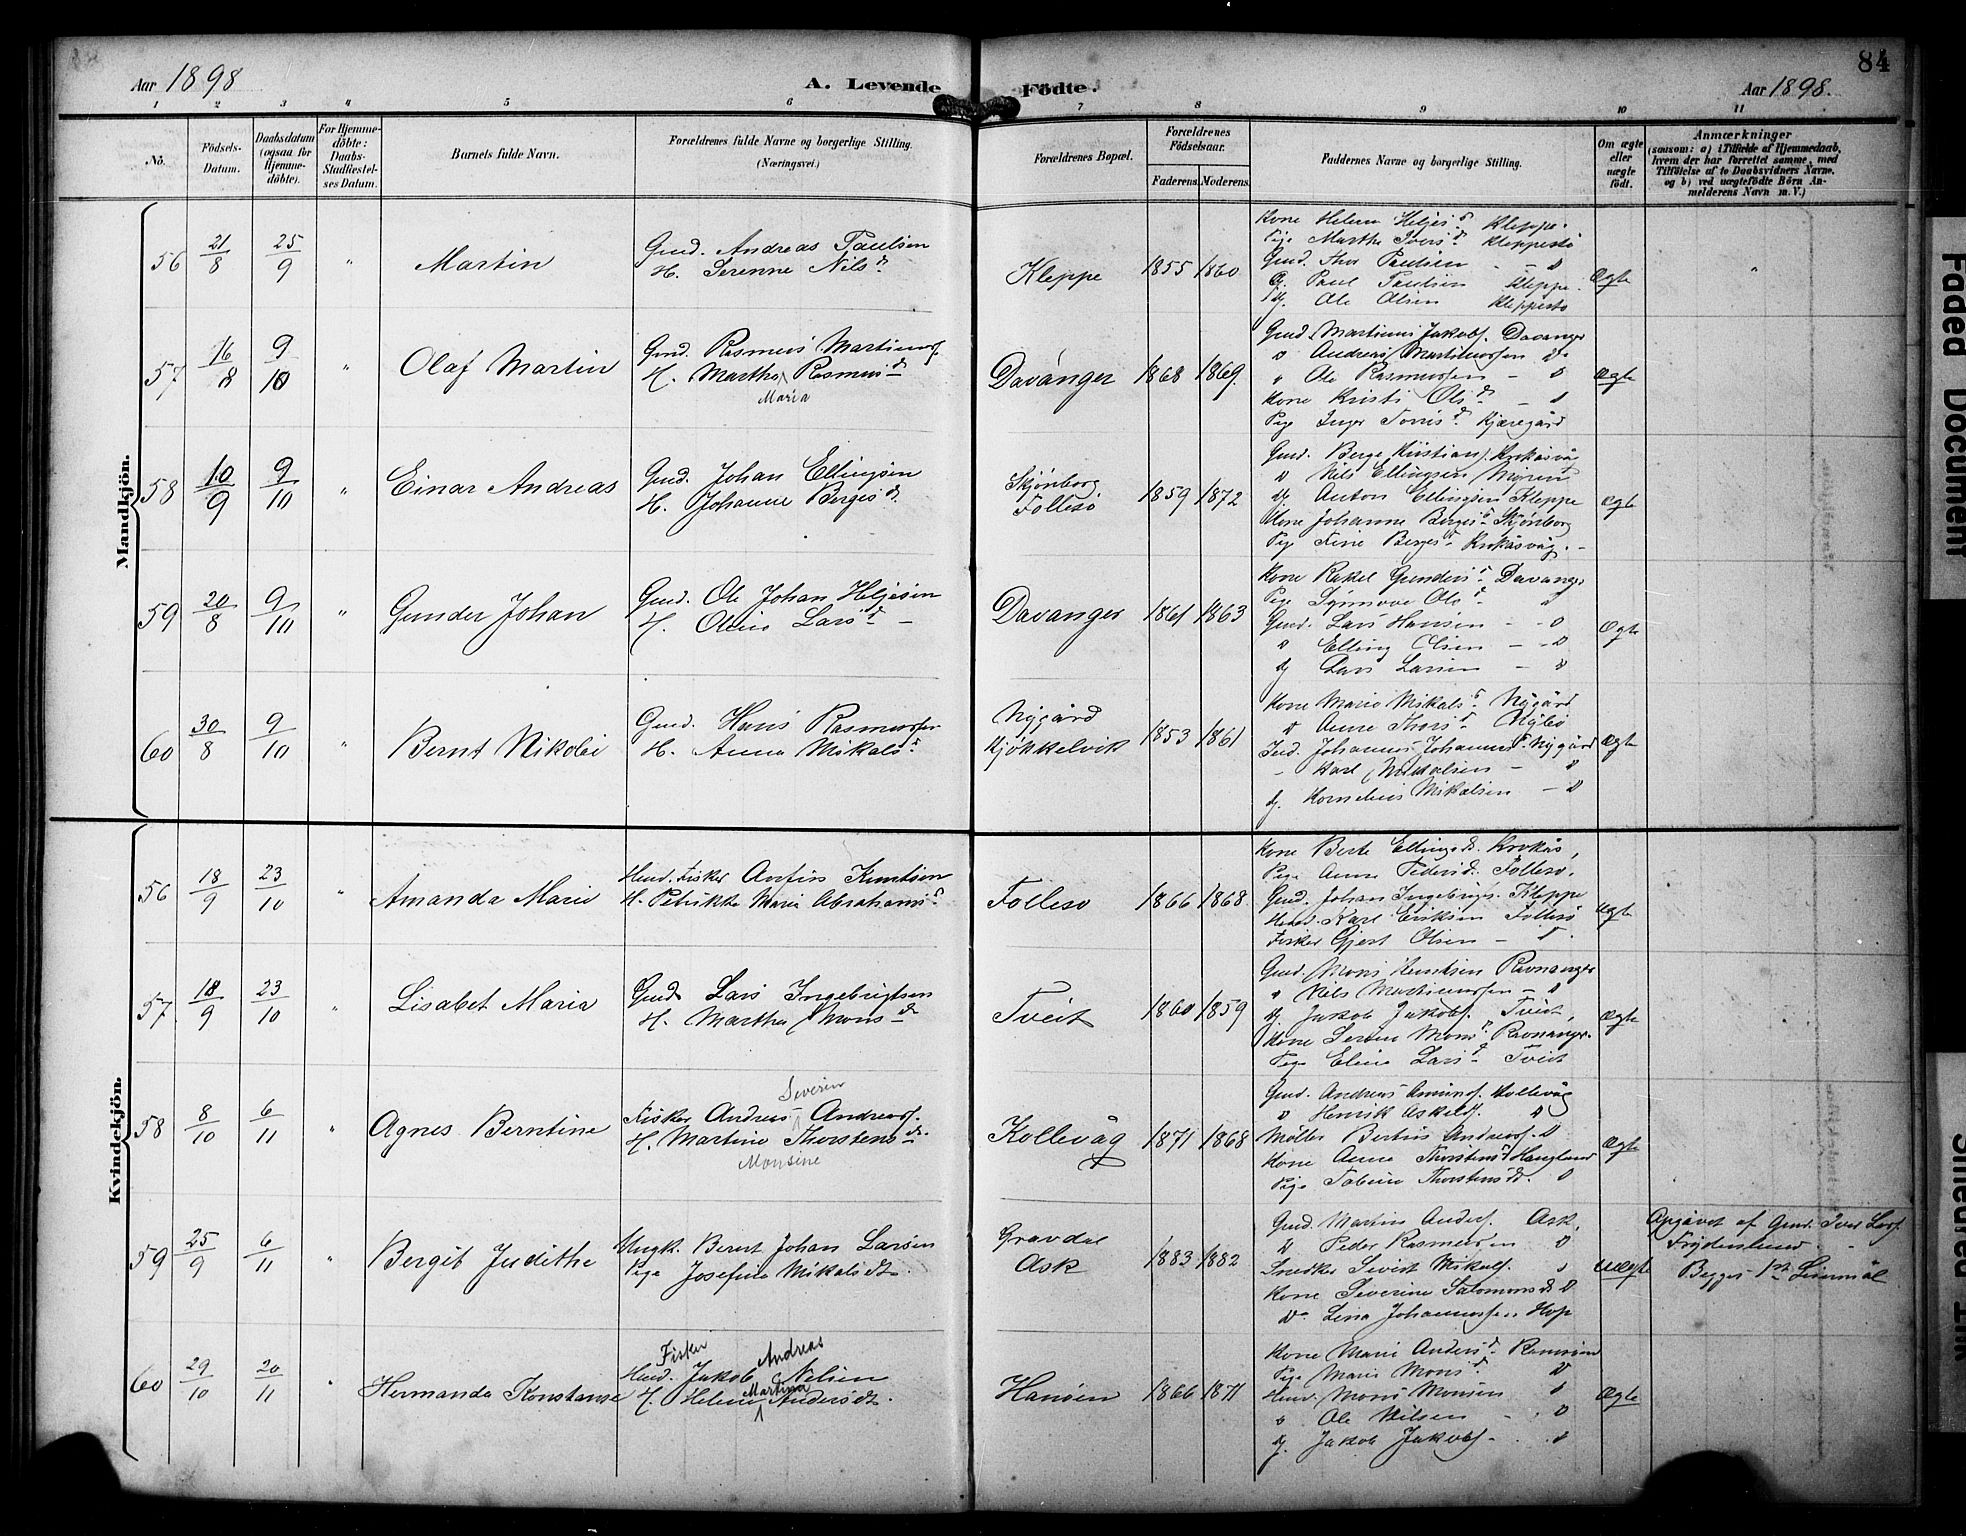 84
Aar 1898
A. Levende Födte.
Aar 1898.
1 2 3 4 5 6 7 8 9 10 11
No.
Födsels-Datum.
Daabsdatum (ogsaa for Hjemme-döbte).
For Hjemme-döbte: Daabs-Stadfæstel-ses Datum.
Barnets fulde Navn.
Forældrenes fulde Navne og borgerlige Stilling. (Næringsvei.)
Forældrenes Bopæl.
Forældrenes Födselsaar.
Faderens. Moderens.
Faddernes Navne og borgerlige Stilling.
Om ægte eller uægte födt.
Anmærkninger
(saasom: a) i Tilfælde af Hjemmedaab, hvem der har forrettet samme, med Tilföielse af to Daabsvidners Navne, og b) ved uægtefödte Börn An-melderens Navn m. V.)
Mandkjön.
56 21/8 25/9 " Martin
Gmd. Andreas Paulsen
H. Serenne Nilsd.
Kleppe 1855 1860
Kone Helene Heljesd. Kleppe.
Pige Martha Iversd. Kleppestø
Gmd. Thor Paulsen - D
G. Paul Paulsen Kleppe.
Ug. Ole Olsen Kleppestø
Ægte "
57 16/8 9/10 " Olaf Martin
Gmd. Rasmus Martinuss.
H. Martha Rasmusd.
Maria
Davanger 1868 1869.
Gmd. Martinus Jakobs. Davanger
D Andreas Martinussen D
" Ole Rasmussen - D
Kone Kristi Olsd. - D
Pige Inger Torrisd. Kjæregård
Ægte
58 10/9 9/10 " Einar Andreas
Gmd. Johan Ellingsen
H. Johanne Bergesd.
Skjønborg
Follesø
1859 1872
Gmd. Berge Kristians. Krokåsvåg
D Nils Ellingsen Myren
Ug. Anton Ellingsen Kleppe
Kone Johanne Bergesd. Skjønborg
Pige Sine Bergesd. Krokåsvåg. -
Ægte
59 20/8 9/10 " Gunder Johan
Gmd. Ole Johan Heljesen
H. Oline Larsd. -
Davanger 1861 1863
Kone Rakel Gundersd. Davanger
Pige Synnove Olsd. "
Gmd. Lars Hansen - D
D Elling Olsen - D
Ug Lars Larsen - D
Ægte
60 30/8 9/10 " Bernt Nikolai
Gmd. Hans Rasmussen
H. Anna Mikalsd.
Nygård
Kjøkkelvik
1853 1861
Kone Marie Mikalsd. Nygård
D Anne Thorsd. Nybø
Ind. Johannes Johanness. Nygård
- Karl Mikalsen - D
Ug. Kornelius Mikalsen - D
Ægte
Kvindekjön.
56 18/9 23/10 " Amanda Marie
Husd. Fisker Anfin Knutsen
H. Petrikke Maria Abrahamsd.
Follesø 1866 1868
Kone Berte Ellingsd. Krokås,
Pige Anne Pedersd. Follesø,
Gmd. Johan Ingebrigts. Kleppe
Husd. Karl Eriksen Follesø
Fisker Gjert Olsen - D.
Ægte
57 18/9 23/10 " Lisabet Maria
Gmd. Lars Ingebrigtsen
H. Martha Monsd.
Tveit 1860 1859
Gmd. Mons Knutsen Ravnanger
" Nils Martinussen - D
Ug Jakob Jakobs. Tveit,
Kone Serine Monsd. Ravnanger.
Pige Eline Larsd. Tveit
Ægte
58 8/10 6/11 " Agnes Berntine
Severin
Fisker Andreas Andreass.
H. Martine Thorstensd.
Monsine
Kollevåg 1871 1868
Gmd. Andreas Amunds. Kollevåg
D Henrik Askelds. D
Møller Bertus Andreass. D
Kone Anne Thorstensd. Haugland
Pige Tobine Thorstensd. D
Ægte
59 25/9 6/11 " Bergit Judithe
Ungk. Bernt Johan Larsen
Pige Josefine Mikalsdt.
Gravdal
Ask
1883 1882
Gmd. Martin Anders. Ask,
D Peder Rasmussen D
Snedker Sivert Mikals. D
Kone Severine Salomonsd. D
Do Lina Johannessen Hop
Uægte
Opgivet af Gmd. Iver Lars.
Frydenlund -
Begges 1ste Leiermål
60 29/10 20/11 " Hermanda Konstanse
Fisker Andreas
Husd. Jakob Nilsen
H. Helene Andersdt.
Martina
Hansen 1866 1871
Kone Marie Andersd. Ramsøen
Pige Marie Monsd. D
Husd. Mons Monsen D
" Ole Nilsen - D
Ug. Jakob Jakobs. - D
Ægte
Faded Document
Smeared Ink